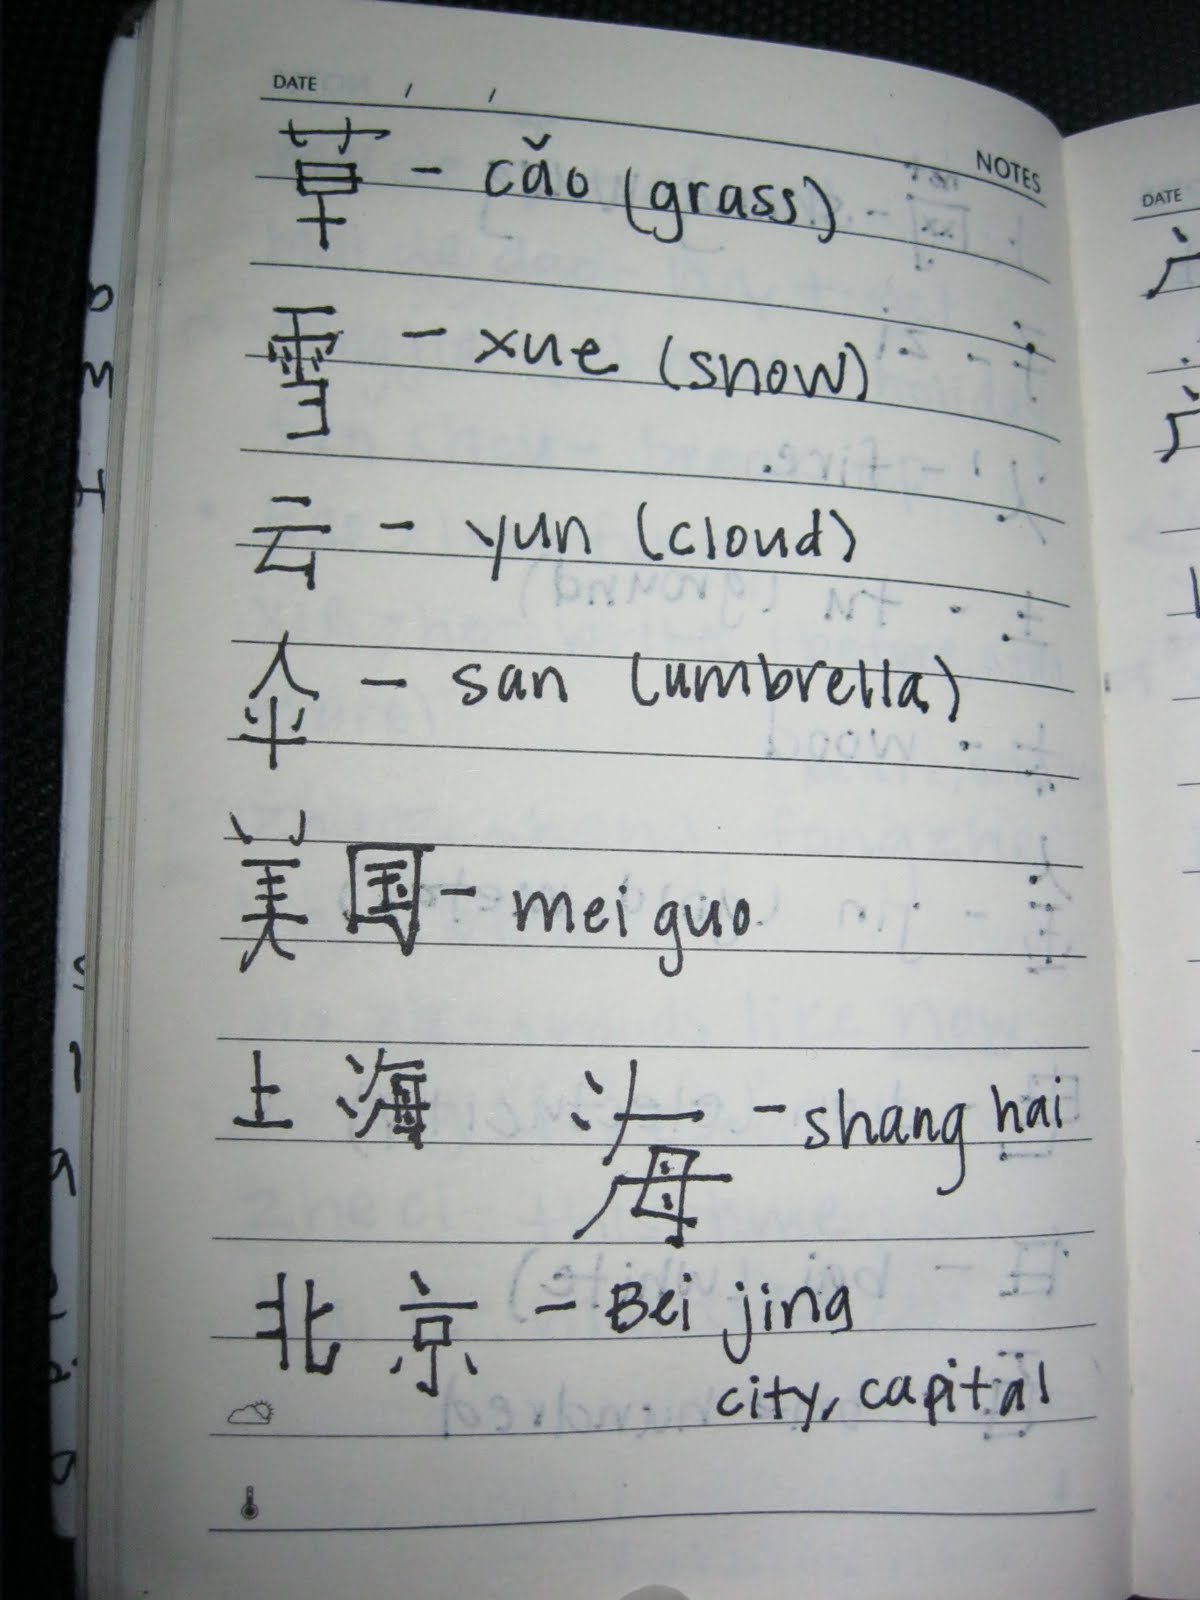 DATE / /
NOTES
草 - cǎo (grass)
雪 - xue (snow)
云 - yun (cloud)
伞 - san (umbrella)
美国 - mei guo
上海 海 - shang hai
北京 - Bei jing
city, capital
DATE